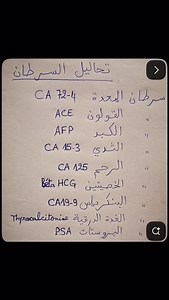 تحاليل السرطان
سرطان المعدة CA 72-4
" القولون ACE
" الكبد AFP
" الثدي CA 15.3
" الرحم CA 125
" الخصيتين Bêta HCG
" البنكرياس CA19-9
" الغدة الدرقية Thyrocalcitonine
" البروستات PSA